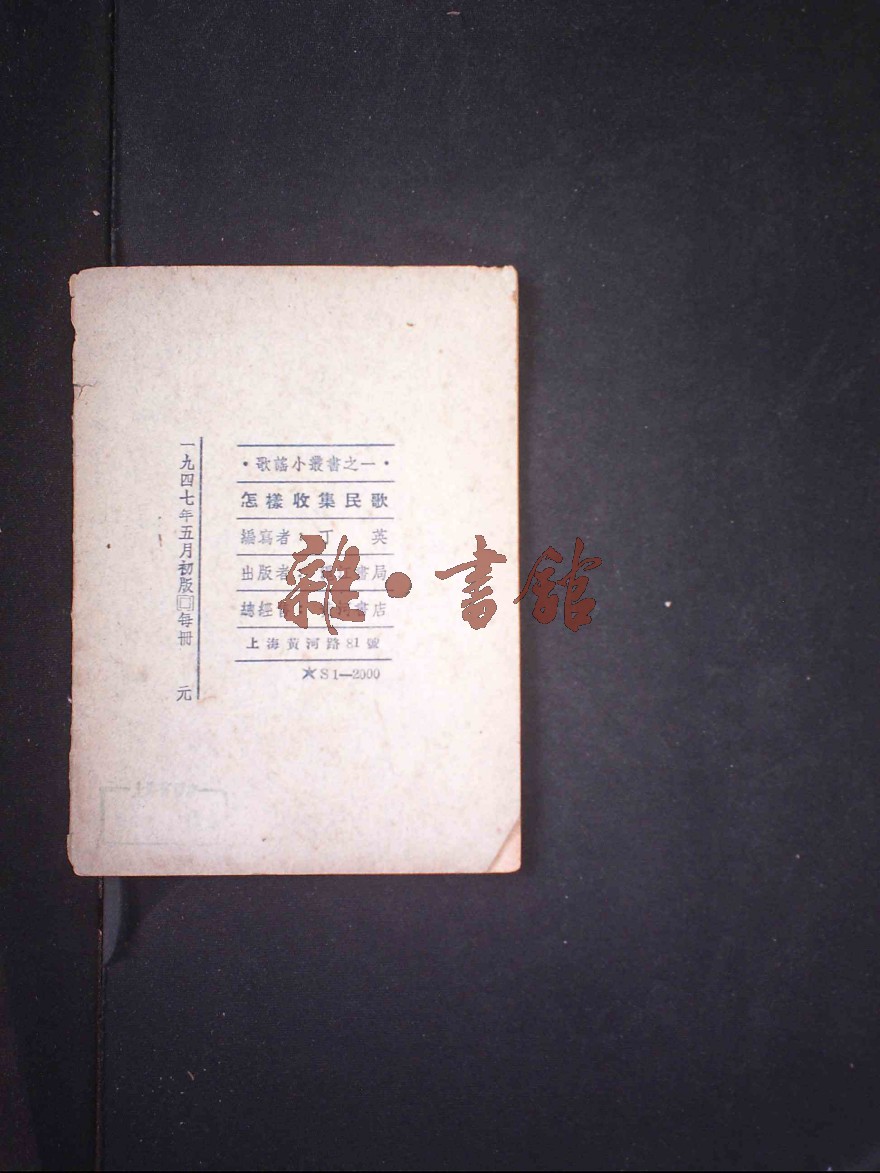 •歌謠小叢書之一•
怎樣收集民歌
編寫者 丁 英
出版者 書局
總經售 書店
上海黃河路81號
★S1—2000
一九四七年五月初版□每冊 元
雜•書館